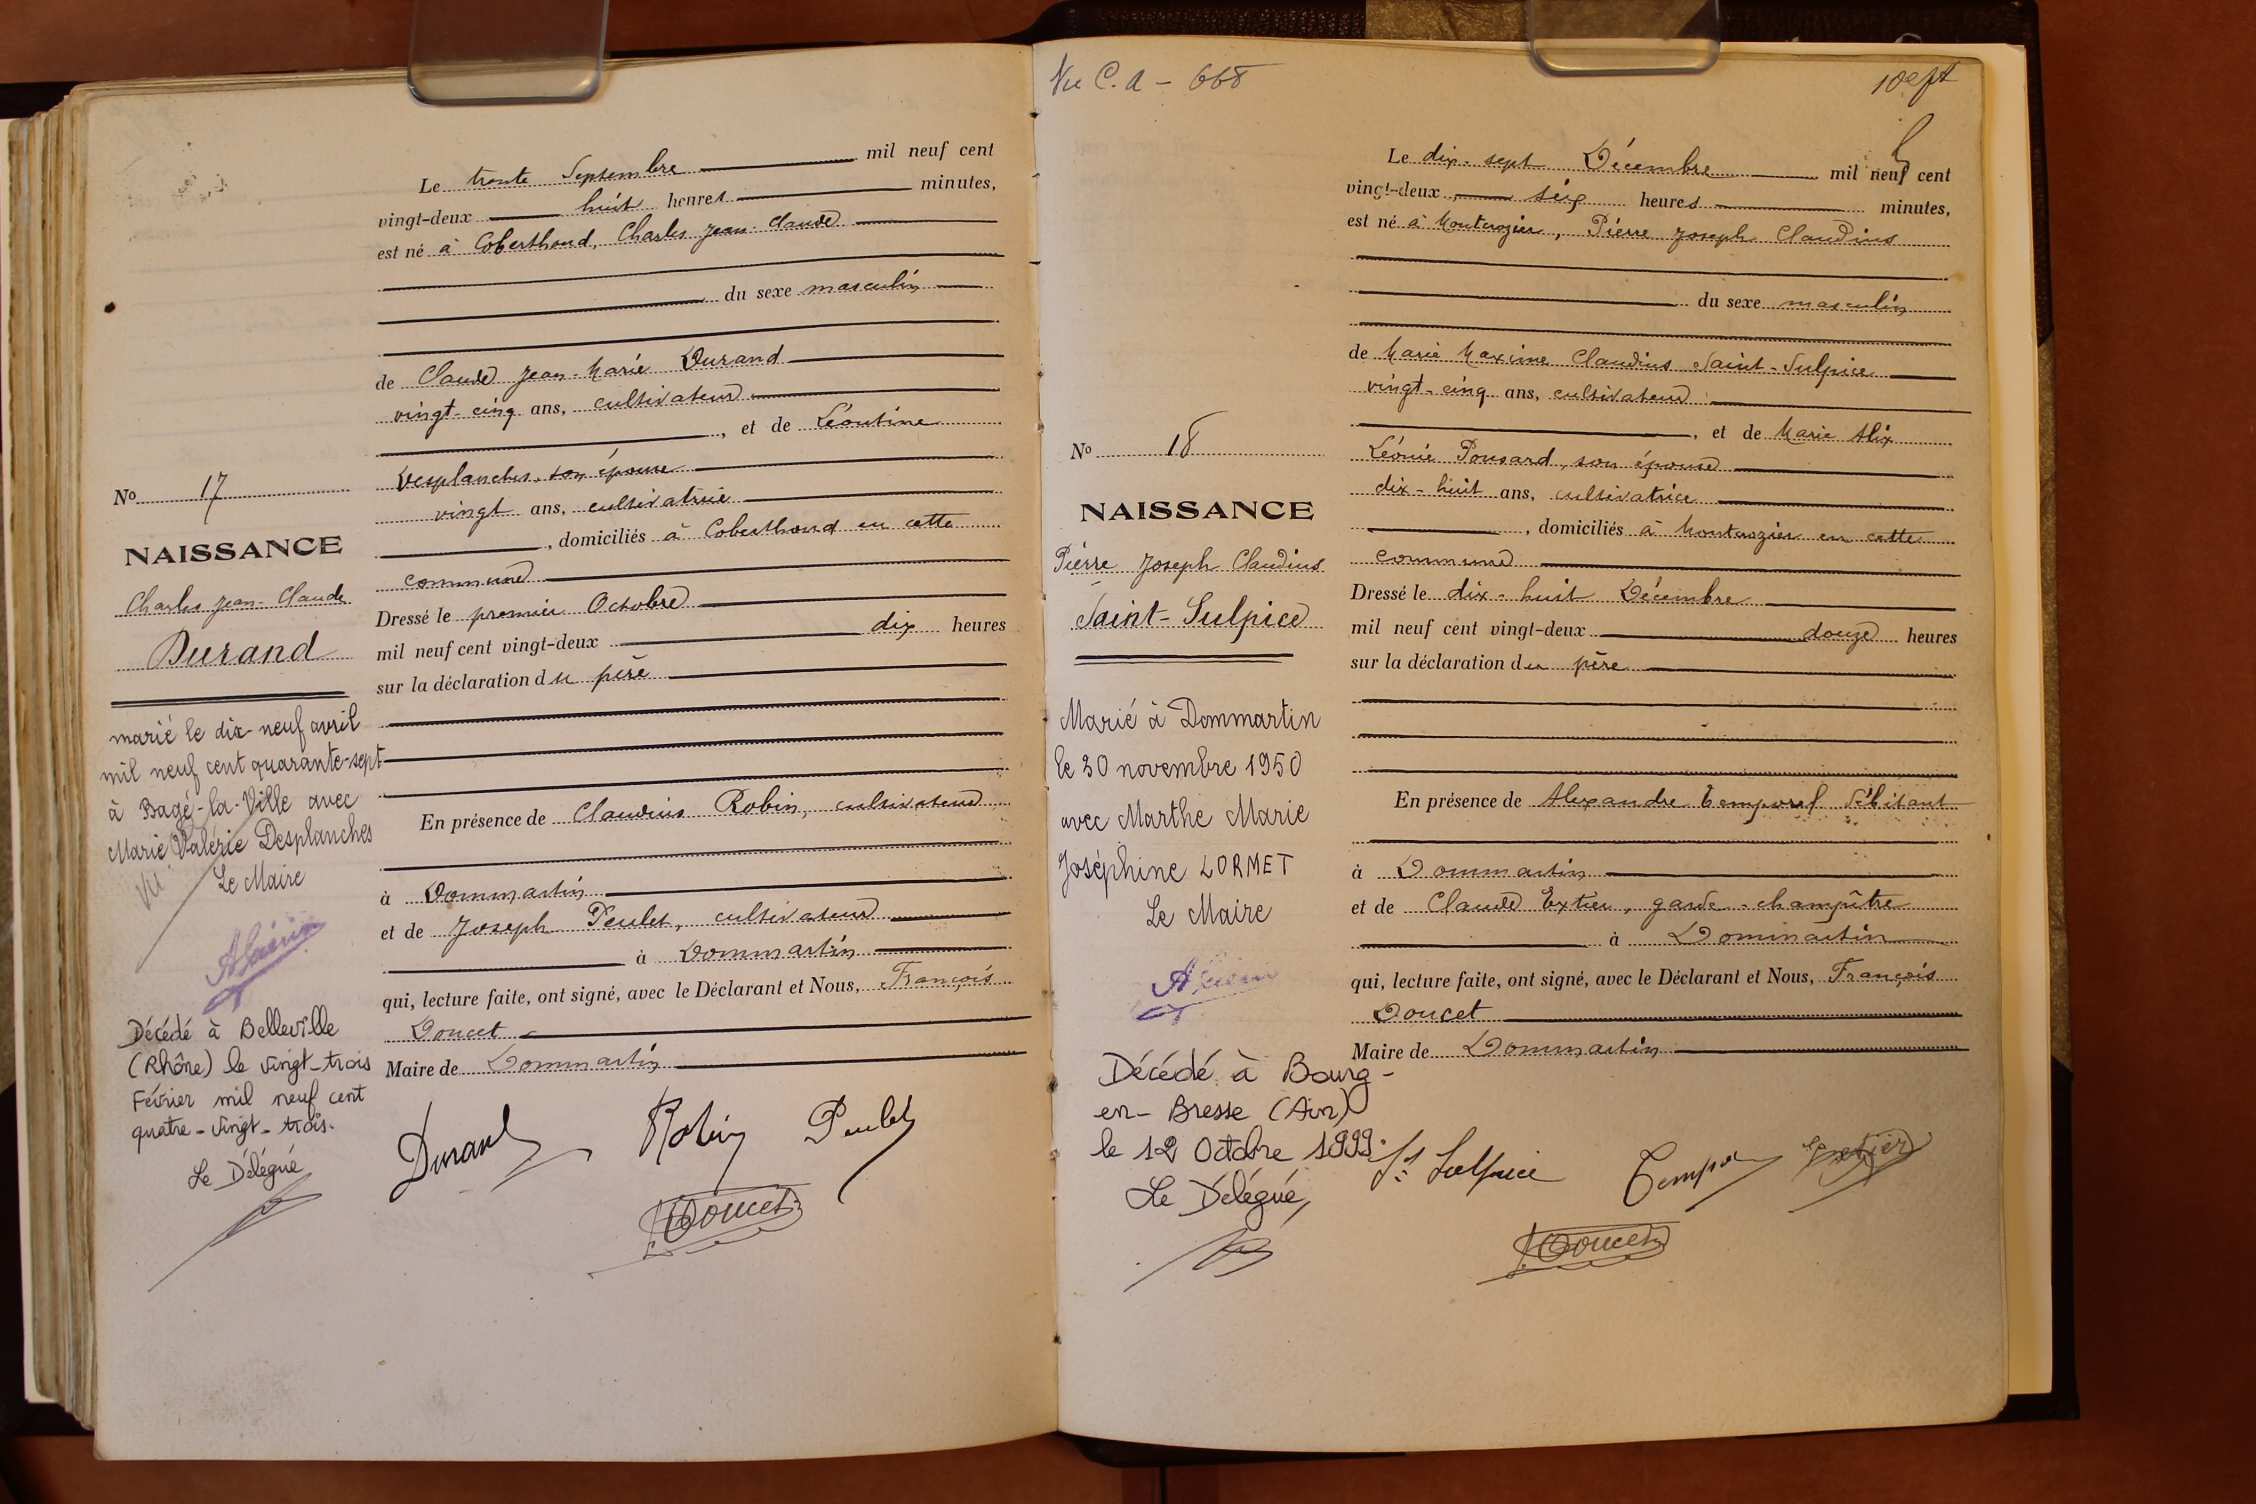 Le trente Septembre mil neuf cent
vingt-deux huit heures minutes,
est né à Coberthoud, Charles Jean-Claude
du sexe masculin
de Claude Jean-Marie Durand
vingt-cinq ans, cultivateur
, et de Léontine
Desplanches, son épouse
vingt ans, cultivatrice
, domiciliés à Coberthoud en cette
commune
Dressé le premier Octobre
mil neuf cent vingt-deux dix heures
sur la déclaration du père
En présence de Claudius Robin, cultivateur
à Dommartin
et de Joseph Peulet, cultivateur
à Dommartin
qui, lecture faite, ont signé, avec le Déclarant et Nous, François
Doucet
Maire de Dommartin
Durand Robin Peulet
Doucet
No 17
NAISSANCE
Charles Jean-Claude
Durand
marié le dix-neuf avril
mil neuf cent quarante-sept
à Bagé-la-Ville avec
Marie Valérie Desplanches
Vu Le Maire
Décédé à Belleville
(Rhône) le vingt-trois
Février mil neuf cent
quatre-vingt-trois.
Le Délégué
Vu C.A - 668
Le dix-sept Décembre mil neuf cent
vingt-deux six heures minutes,
est né à Montcrozier, Pierre Joseph Claudius
du sexe masculin
de Marie Maxime Claudius Saint-Sulpice
vingt-cinq ans, cultivateur
, et de Marie Alix
Léonie Ponsard, son épouse
dix-huit ans, cultivatrice
, domiciliés à Montcrozier en cette
commune
Dressé le dix-huit Décembre
mil neuf cent vingt-deux douze heures
sur la déclaration du père
En présence de Alexandre Temporal débitant
à Dommartin
et de Claude Extier, garde-champêtre
à Dommartin
qui, lecture faite, ont signé, avec le Déclarant et Nous, François
Doucet
Maire de Dommartin
St Sulpice
Doucet
No 18
NAISSANCE
Pierre Joseph Claudius
Saint-Sulpice
Marié à Dommartin
le 30 novembre 1950
avec Marthe Marie
Joséphine LORMET
Le Maire
Décédé à Bourg-
en-Bresse (Ain)
le 12 Octobre 1999.
Le Délégué,